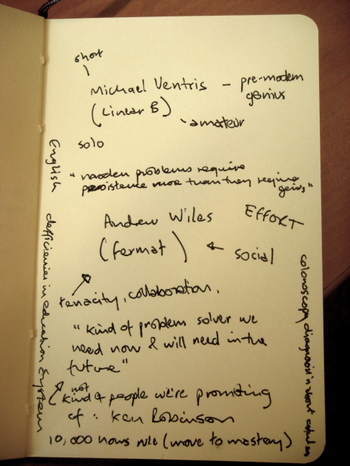 short
Michael Ventris - pre-modern
genius
(Linear B)
amateur
solo
"modern problems require
persistence more than they require
genius"
Andrew Wiles
EFFORT
(fermat)
← social
tenacity, collaboration.
"kind of problem solver we
need now & will need in the
future"
not
kind of people we're promoting
of: Ken Robinson
10,000 hours rule (move to mastery)
English deficiencies in education system
colonoscopy diagnosis is about